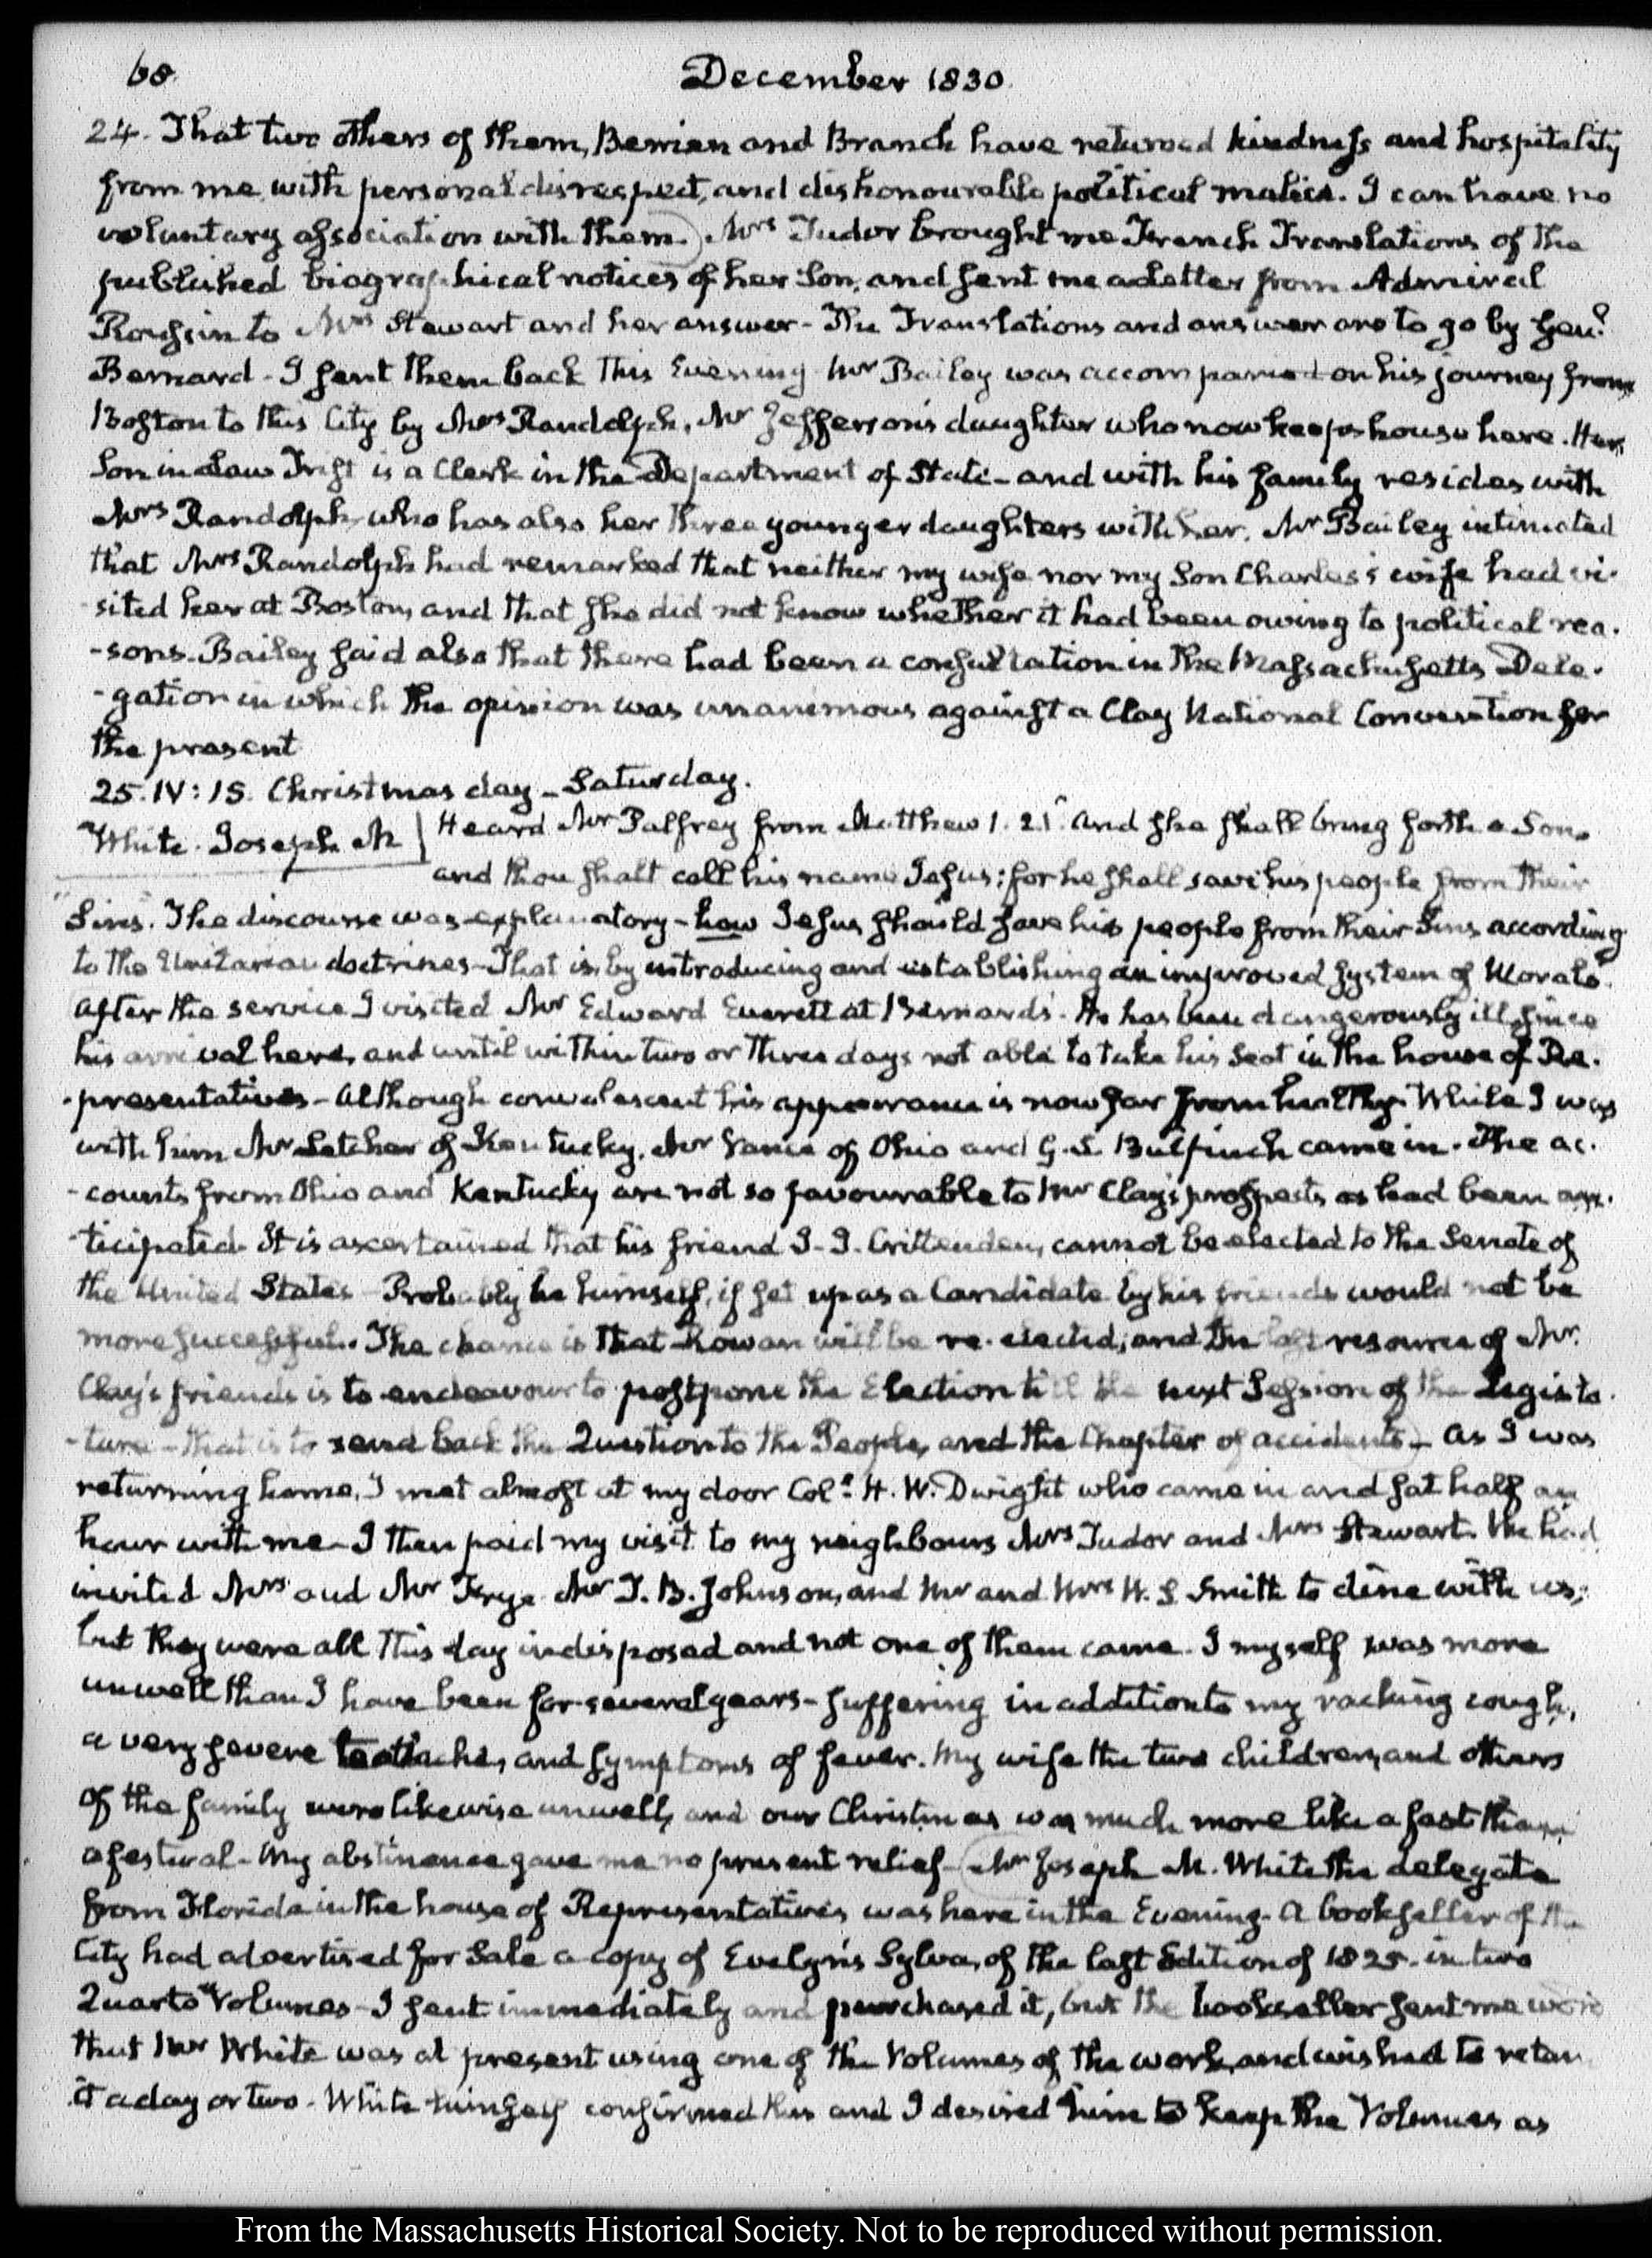 68
December 1830.
24. That two others of them, Berrien and Branch have returned kindness and hospitality
from me, with personal disrespect, and dishonourable political malice. I can have no
voluntary association with them.) Mrs Tudor brought me French Translations of the
published biographical notices of her Son, and sent me a Letter from Admiral
to Mrs Stewart and her answer - The Translations and answer are to go by Genl.
Bernard - I sent them back this Evening. Mr Bailey was accompanied on his journey from
Boston to this City by Mrs Randolph, Mr Jefferson's daughter who now keeps house here. Her
Son in Law Trist is a Clerk in the Department of State - and with his family resides with
Mrs Randolph, who has also her three younger daughters with her. Mr Bailey intimated
that Mrs Randolph had remarked that neither my wife nor my Son Charles's wife had vi-
sited her at Boston, and that she did not know whether it had been owing to political rea-
-sons. Bailey said also that there had been a consultation in the Massachusetts Dele-
-gation in which the opinion was unanimous against a Clay National Convention for
the present
25. IV:15. Christmas day - Saturday.
White. Joseph M | Heard Mr Palfrey from Matthew 1. 21. "And she shall bring forth a Son,
and thou shalt call his name Jesus: for he shall save his people from their
Sins." The discourse was explanatory - how Jesus should save his people from their Sins according
to the Unitarian doctrines - That is, by introducing and establishing an improved System of Morals.
After the service I visited Mr Edward Everett at Barnard's. He has been dangerously ill since
his arrival here, and until within two or three days not able to take his Seat in the house of Re-
-presentatives - Although convalescent his appearance is now far from healthy. While I was
with him Mr Letcher of Kentucky, Mr Vance of Ohio and G. S. Bulfinch came in. The ac-
-counts from Ohio and Kentucky are not so favourable to Mr Clay's prospects as had been an-
-ticipated. It is ascertained that his friend J. J. Crittenden, cannot be elected to the Senate of
the United States - Probably he himself, if set up as a Candidate by his friends would not be
more successful. The chance is that Rowan will be re-elected; and the last resource of Mr.
Clay's friends is to endeavour to postpone the Election till the next Session of the Legisla-
-ture - that is to send back the Question to the People, and the Chapter of accidents) - As I was
returning home, I met almost at my door Coll. H. W. Dwight who came in and sat half an
hour with me - I then paid my visit to my neighbours Mrs Tudor and Mrs Stewart. We had
invited Mrs and Mr Frye Mr T. B. Johnson, and Mr and Mrs W. S. Smith to dine with us;
but they were all this day indisposed and not one of them came. I myself was more
unwell than I have been for several years - suffering in addition to my racking cough,
a very severe toothache, and symptoms of fever. My wife the two children, and others
of the family were likewise unwell, and our Christmas was much more like a fast than
a festival - My abstinence gave me no present relief - (Mr Joseph M. White the delegate
from Florida in the house of Representatives was here in the Evening. A bookseller of the
City had advertised for Sale a copy of Evelyn's Sylva, of the last Edition of 1825. in two
Quarto Volumes - I sent immediately and purchased it, but the bookseller sent me word
that Mr White was at present using one of the Volumes of the work, and wished to retain
it a day or two - White himself confirmed this and I desired him to keep the Volumes as
From the Massachusetts Historical Society. Not to be reproduced without permission.